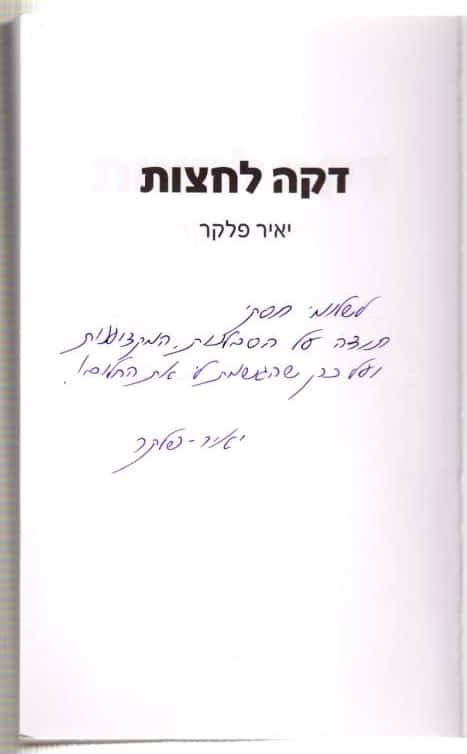 דקה לחצות
יאיר פלקר
לשלומי חסקי
תודה על הסבלנות, המקצועיות
ועל כך שהגשמת לי את החלום!
יאיר פלקר